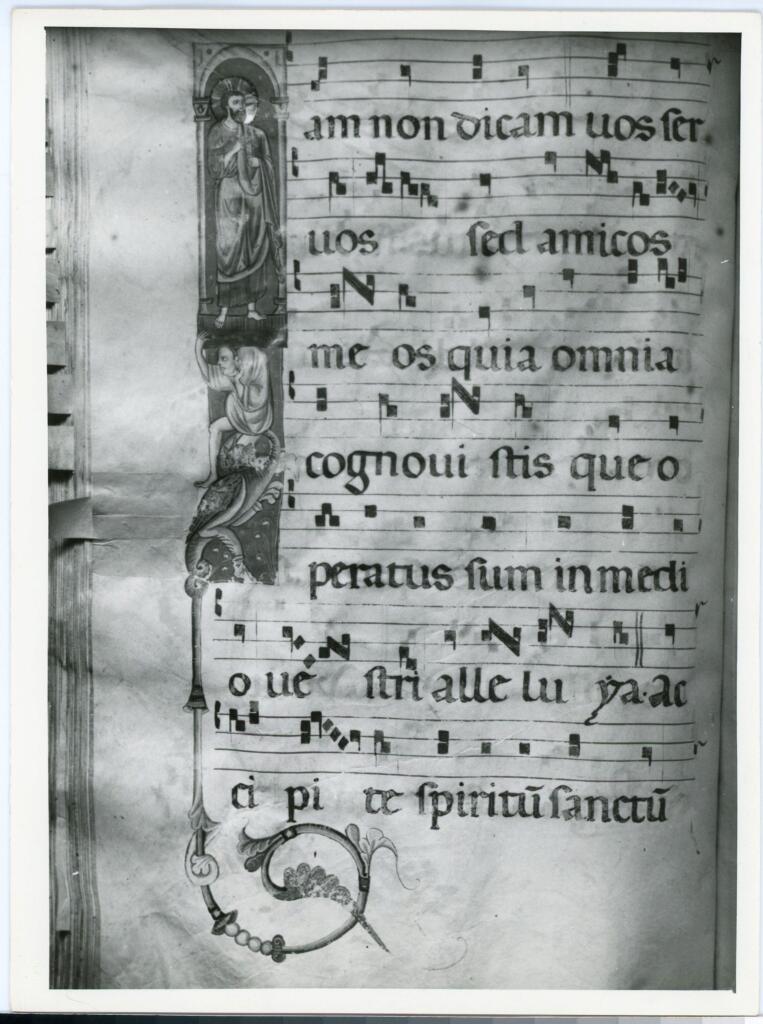 am non dicam uos ser
uos sed amicos
me os quia omnia
cognoui stis que o
peratus sum in medi
o ue stri alle lu ya. ac
ci pi te spiritū sanctū